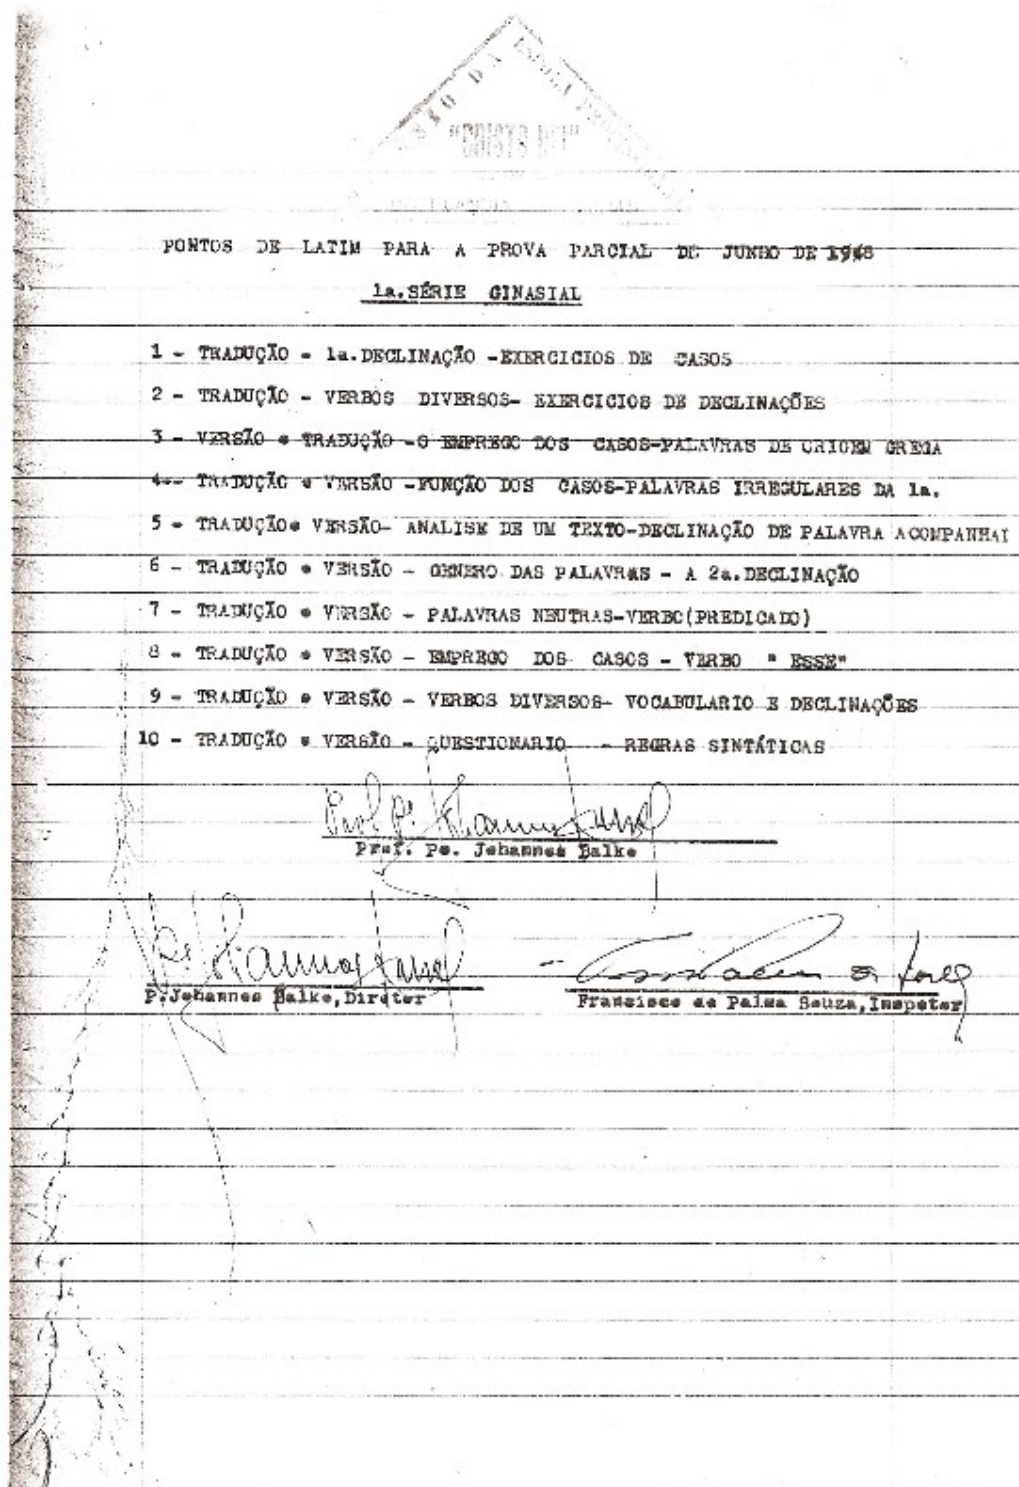 DA ESCOLA
"CRISTO REI"
PONTOS DE LATIM PARA A PROVA PARCIAL DE JUNHO DE
1a.SÉRIE GINASIAL
1 - TRADUÇÃO - 1a.DECLINAÇÃO -EXERCICIOS DE CASOS
2 - TRADUÇÃO - VERBOS DIVERSOS- EXERCICIOS DE DECLINAÇÕES
3 - VERSÃO e TRADUÇÃO -O EMPREGO DOS CASOS-PALAVRAS DE ORIGEM GREGA
4-- TRADUÇÃO e VERSÃO -FUNÇÃO DOS CASOS-PALAVRAS IRREGULARES DA 1a.
5 - TRADUÇÃOe VERSÃO- ANALISE DE UM TEXTO-DECLINAÇÃO DE PALAVRA ACOMPANHAI
6 - TRADUÇÃO e VERSÃO - GENERO DAS PALAVRAS - A 2a.DECLINAÇÃO
7 - TRADUÇÃO e VERSÃO - PALAVRAS NEUTRAS-VERBO(PREDICADO)
8 - TRADUÇÃO e VERSÃO - EMPREGO DOS CASOS - VERBO " ESSE"
9 - TRADUÇÃO e VERSÃO - VERBOS DIVERSOS- VOCABULARIO E DECLINAÇÕES
10 - TRADUÇÃO e VERSÃO - QUESTIONARIO - REGRAS SINTÁTICAS
Prof. Pe. Johannes Balke
P.Johannes Balke,Diretor
Francisco de Palma Souza,Inspetor